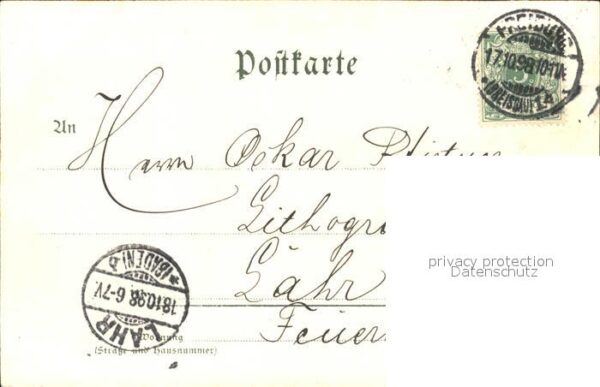 Postkarte
FREIBURG
17.10.98.10-11V.
(BREISGAU) 1.
An
Herrn Oskar
Lithogr
privacy protection
Datenschutz
Lahr
* (BADEN) *
18.10.98.6-7V.
LAHR
Feuer
Wohnung
(Straße und Hausnummer)